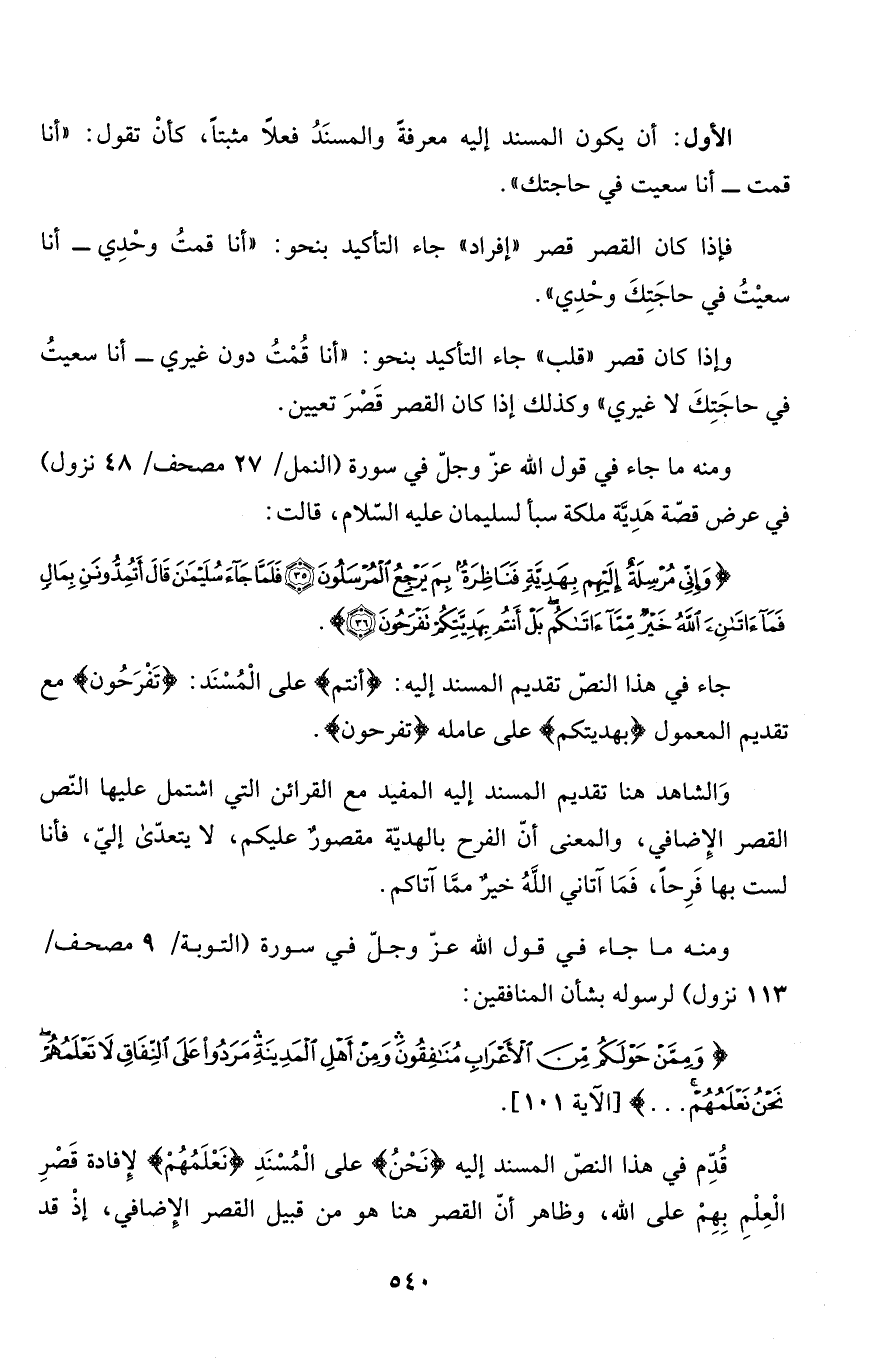 الأول: أن يكون المسند إليه معرفةً والمسنَدُ فعلاً مثبتاً، كأنْ تقول: «أنا
قمت ــ أنا سعيت في حاجتك».
فإذا كان القصر قصر «إفراد» جاء التأكيد بنحو: «أنا قمتُ وحْدِي ــ أنا
سعيْتُ في حاجَتِكَ وحْدِي».
وإذا كان قصر «قلب» جاء التأكيد بنحو: «أنا قُمْتُ دون غيري ــ أنا سعيتُ
في حاجَتِكَ لا غيري» وكذلك إذا كان القصر قَصْرَ تعيين.
ومنه ما جاء في قول الله عزّ وجلّ في سورة (النمل/ ٢٧ مصحف/ ٤٨ نزول)
في عرض قصّة هَدِيَّة ملكة سبأ لسليمان عليه السّلام، قالت:
﴿وَإِنِّي مُرْسِلَةٌ إِلَيْهِم بِهَدِيَّةٍ فَنَاظِرَةٌۢ بِمَ يَرْجِعُ الْمُرْسَلُونَ ٣٥ فَلَمَّا جَآءَ سُلَيْمَٰنَ قَالَ أَتُمِدُّونَنِ بِمَالٍ
فَمَآ ءَاتَىٰنِۦَ ٱللَّهُ خَيْرٌ مِّمَّآ ءَاتَىٰكُمۖ بَلْ أَنتُم بِهَدِيَّتِكُمْ تَفْرَحُونَ ٣٦﴾.
جاء في هذا النصّ تقديم المسند إليه: ﴿أنتم﴾ على الْمُسْنَد: ﴿تَفْرَحُون﴾ مع
تقديم المعمول ﴿بهديتكم﴾ على عامله ﴿تفرحون﴾.
وَالشاهد هنا تقديم المسند إليه المفيد مع القرائن التي اشتمل عليها النّص
القصر الإِضافي، والمعنى أنّ الفرح بالهديّة مقصورٌ عليكم، لا يتعدّىٰ إليّ، فأنا
لست بها فَرِحاً، فَمَا آتاني اللَّهُ خيرٌ ممَّا آتاكم.
ومنـه مـا جـاء فـي قـول الله عـزّ وجـلّ فـي سـورة (التـوبـة/ ٩ مصحـف/
١١٣ نزول) لرسوله بشأن المنافقين:
﴿وَمِمَّنْ حَوْلَكُم مِّنَ ٱلْأَعْرَابِ مُنَٰفِقُونَۖ وَمِنْ أَهْلِ ٱلْمَدِينَةِۖ مَرَدُوا۟ عَلَى ٱلنِّفَاقِ لَا تَعْلَمُهُمْۖ
نَحْنُ نَعْلَمُهُمْۚ...﴾ [الآية ١٠١].
قُدِّم في هذا النصّ المسند إليه ﴿نَحْنُ﴾ على الْمُسْنَدِ ﴿نَعْلَمُهُمْ﴾ لإِفادة قَصْرِ
الْعِلْمِ بِهِمْ على الله، وظاهر أنّ القصر هنا هو من قبيل القصر الإِضافي، إذْ قد
٥٤٠